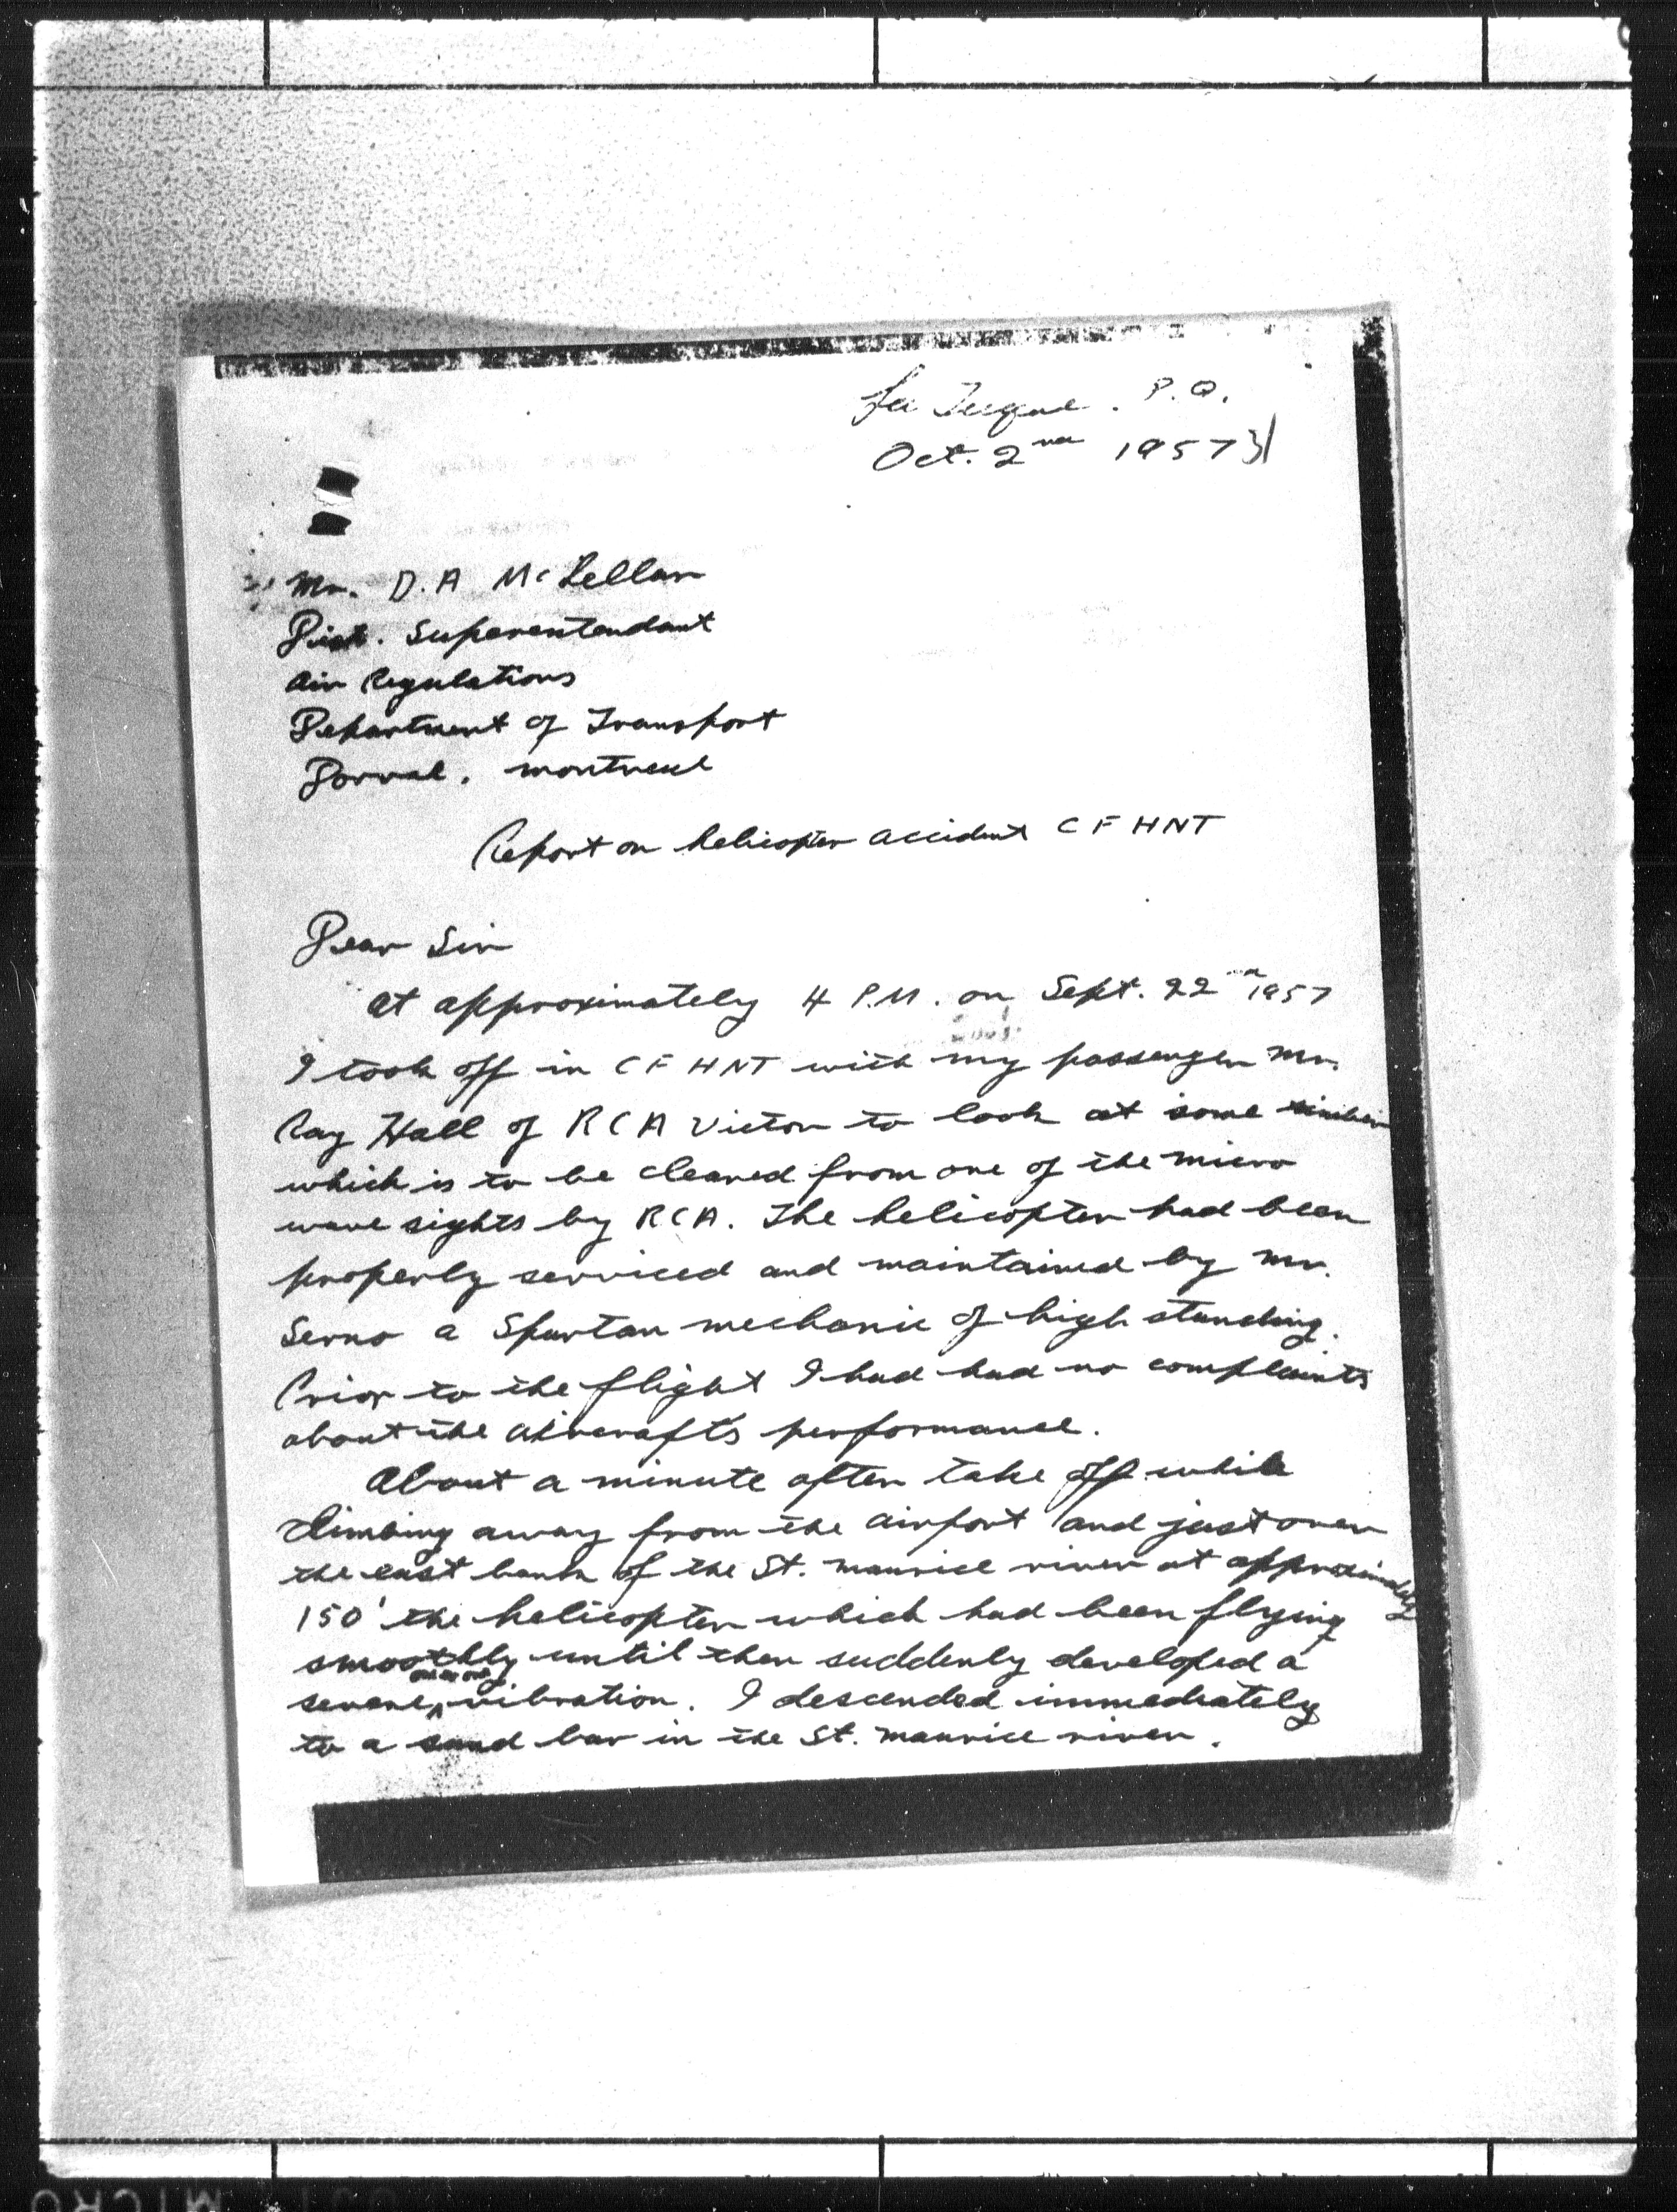 La Tuque. P.Q.
Oct. 2nd 1957
31
Mr. D.A McLellan
Dist. Superentendant
Air Regulations
Department of Transport
Dorval. Montreal
Report on helicopter accident CF HNT
Dear Sir
At approximately 4 P.M. on Sept. 22nd 1957
I took off in CF HNT with my passenger Mr.
Ray Hall of RCA Victor to look at some timber
which is to be cleared from one of the micro
wave sights by RCA. The helicopter had been
properly serviced and maintained by Mr.
a Spartan mechanic of high standing.
Prior to the flight I had had no complaints
about the aircraft's performance.
About a minute after take off while
climbing away from the airport and just over
the east bank of the St. Maurice river at approximately
150' the helicopter which had been flying
smoothly until then suddenly developed a
severe, one or one vibration. I descended immediately
to a sand bar in the St. Maurice river.